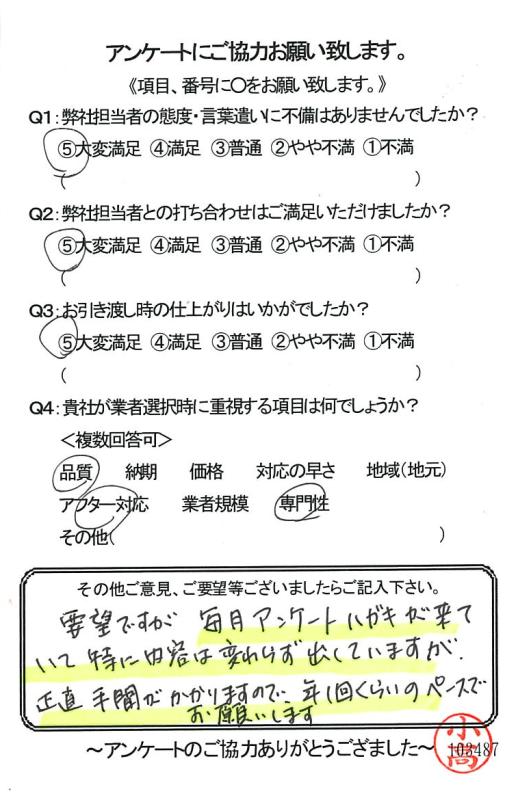 アンケートにご協力お願い致します。
《項目、番号に〇をお願い致します。》
Q1:弊社担当者の態度・言葉遣いに不備はありませんでしたか?
⑤大変満足 ④満足 ③普通 ②やや不満 ①不満
( )
Q2:弊社担当者との打ち合わせはご満足いただけましたか?
⑤大変満足 ④満足 ③普通 ②やや不満 ①不満
( )
Q3:お引き渡し時の仕上がりはいかがでしたか?
⑤大変満足 ④満足 ③普通 ②やや不満 ①不満
( )
Q4:貴社が業者選択時に重視する項目は何でしょうか?
<複数回答可>
品質 納期 価格 対応の早さ 地域(地元)
アフター対応 業者規模 専門性
その他( )
その他ご意見、ご要望等ございましたらご記入下さい。
要望ですが 毎月アンケートハガキが来て
いて 特に内容は変わらず出していますが、
正直 手間がかかりますので、年1回くらいのペースで
お願いします
~アンケートのご協力ありがとうござました~
小高
103487